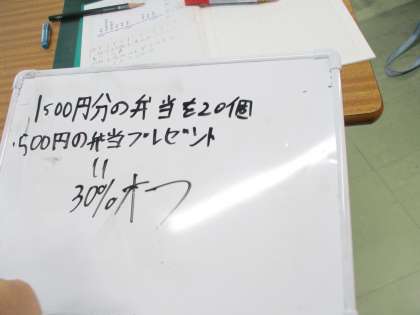 1500円分の弁当を20個
・500円の弁当プレゼント
〃
30%オフ